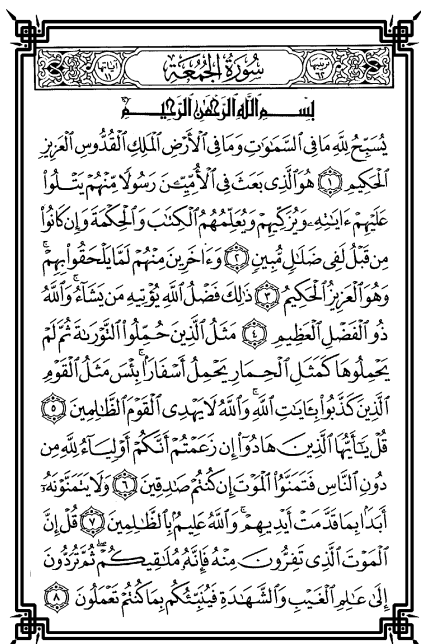 ترتيبها ٦٢ سُورَةُ الجُمُعَة آياتها ١١
بِسْمِ ٱللَّهِ ٱلرَّحْمَٰنِ ٱلرَّحِيمِ
يُسَبِّحُ لِلَّهِ مَا فِي ٱلسَّمَٰوَٰتِ وَمَا فِي ٱلْأَرْضِ ٱلْمَلِكِ ٱلْقُدُّوسِ ٱلْعَزِيزِ
ٱلْحَكِيمِ ١ هُوَ ٱلَّذِي بَعَثَ فِي ٱلْأُمِّيِّـۧنَ رَسُولًا مِّنْهُمْ يَتْلُوا۟
عَلَيْهِمْ ءَايَٰتِهِۦ وَيُزَكِّيهِمْ وَيُعَلِّمُهُمُ ٱلْكِتَٰبَ وَٱلْحِكْمَةَ وَإِن كَانُوا۟
مِن قَبْلُ لَفِي ضَلَٰلٍ مُّبِينٍ ٢ وَءَاخَرِينَ مِنْهُمْ لَمَّا يَلْحَقُوا۟ بِهِمْ ۚ
وَهُوَ ٱلْعَزِيزُ ٱلْحَكِيمُ ٣ ذَٰلِكَ فَضْلُ ٱللَّهِ يُؤْتِيهِ مَن يَشَآءُ ۚ وَٱللَّهُ
ذُو ٱلْفَضْلِ ٱلْعَظِيمِ ٤ مَثَلُ ٱلَّذِينَ حُمِّلُوا۟ ٱلتَّوْرَىٰةَ ثُمَّ لَمْ
يَحْمِلُوهَا كَمَثَلِ ٱلْحِمَارِ يَحْمِلُ أَسْفَارًۢا ۚ بِئْسَ مَثَلُ ٱلْقَوْمِ
ٱلَّذِينَ كَذَّبُوا۟ بِـَٔايَٰتِ ٱللَّهِ ۚ وَٱللَّهُ لَا يَهْدِي ٱلْقَوْمَ ٱلظَّٰلِمِينَ ٥
قُلْ يَٰٓأَيُّهَا ٱلَّذِينَ هَادُوٓا۟ إِن زَعَمْتُمْ أَنَّكُمْ أَوْلِيَآءُ لِلَّهِ مِن
دُونِ ٱلنَّاسِ فَتَمَنَّوُا۟ ٱلْمَوْتَ إِن كُنتُمْ صَٰدِقِينَ ٦ وَلَا يَتَمَنَّوْنَهُۥٓ
أَبَدًۢا بِمَا قَدَّمَتْ أَيْدِيهِمْ ۚ وَٱللَّهُ عَلِيمٌۢ بِٱلظَّٰلِمِينَ ٧ قُلْ إِنَّ
ٱلْمَوْتَ ٱلَّذِي تَفِرُّونَ مِنْهُ فَإِنَّهُۥ مُلَٰقِيكُمْ ۖ ثُمَّ تُرَدُّونَ
إِلَىٰ عَٰلِمِ ٱلْغَيْبِ وَٱلشَّهَٰدَةِ فَيُنَبِّئُكُم بِمَا كُنتُمْ تَعْمَلُونَ ٨